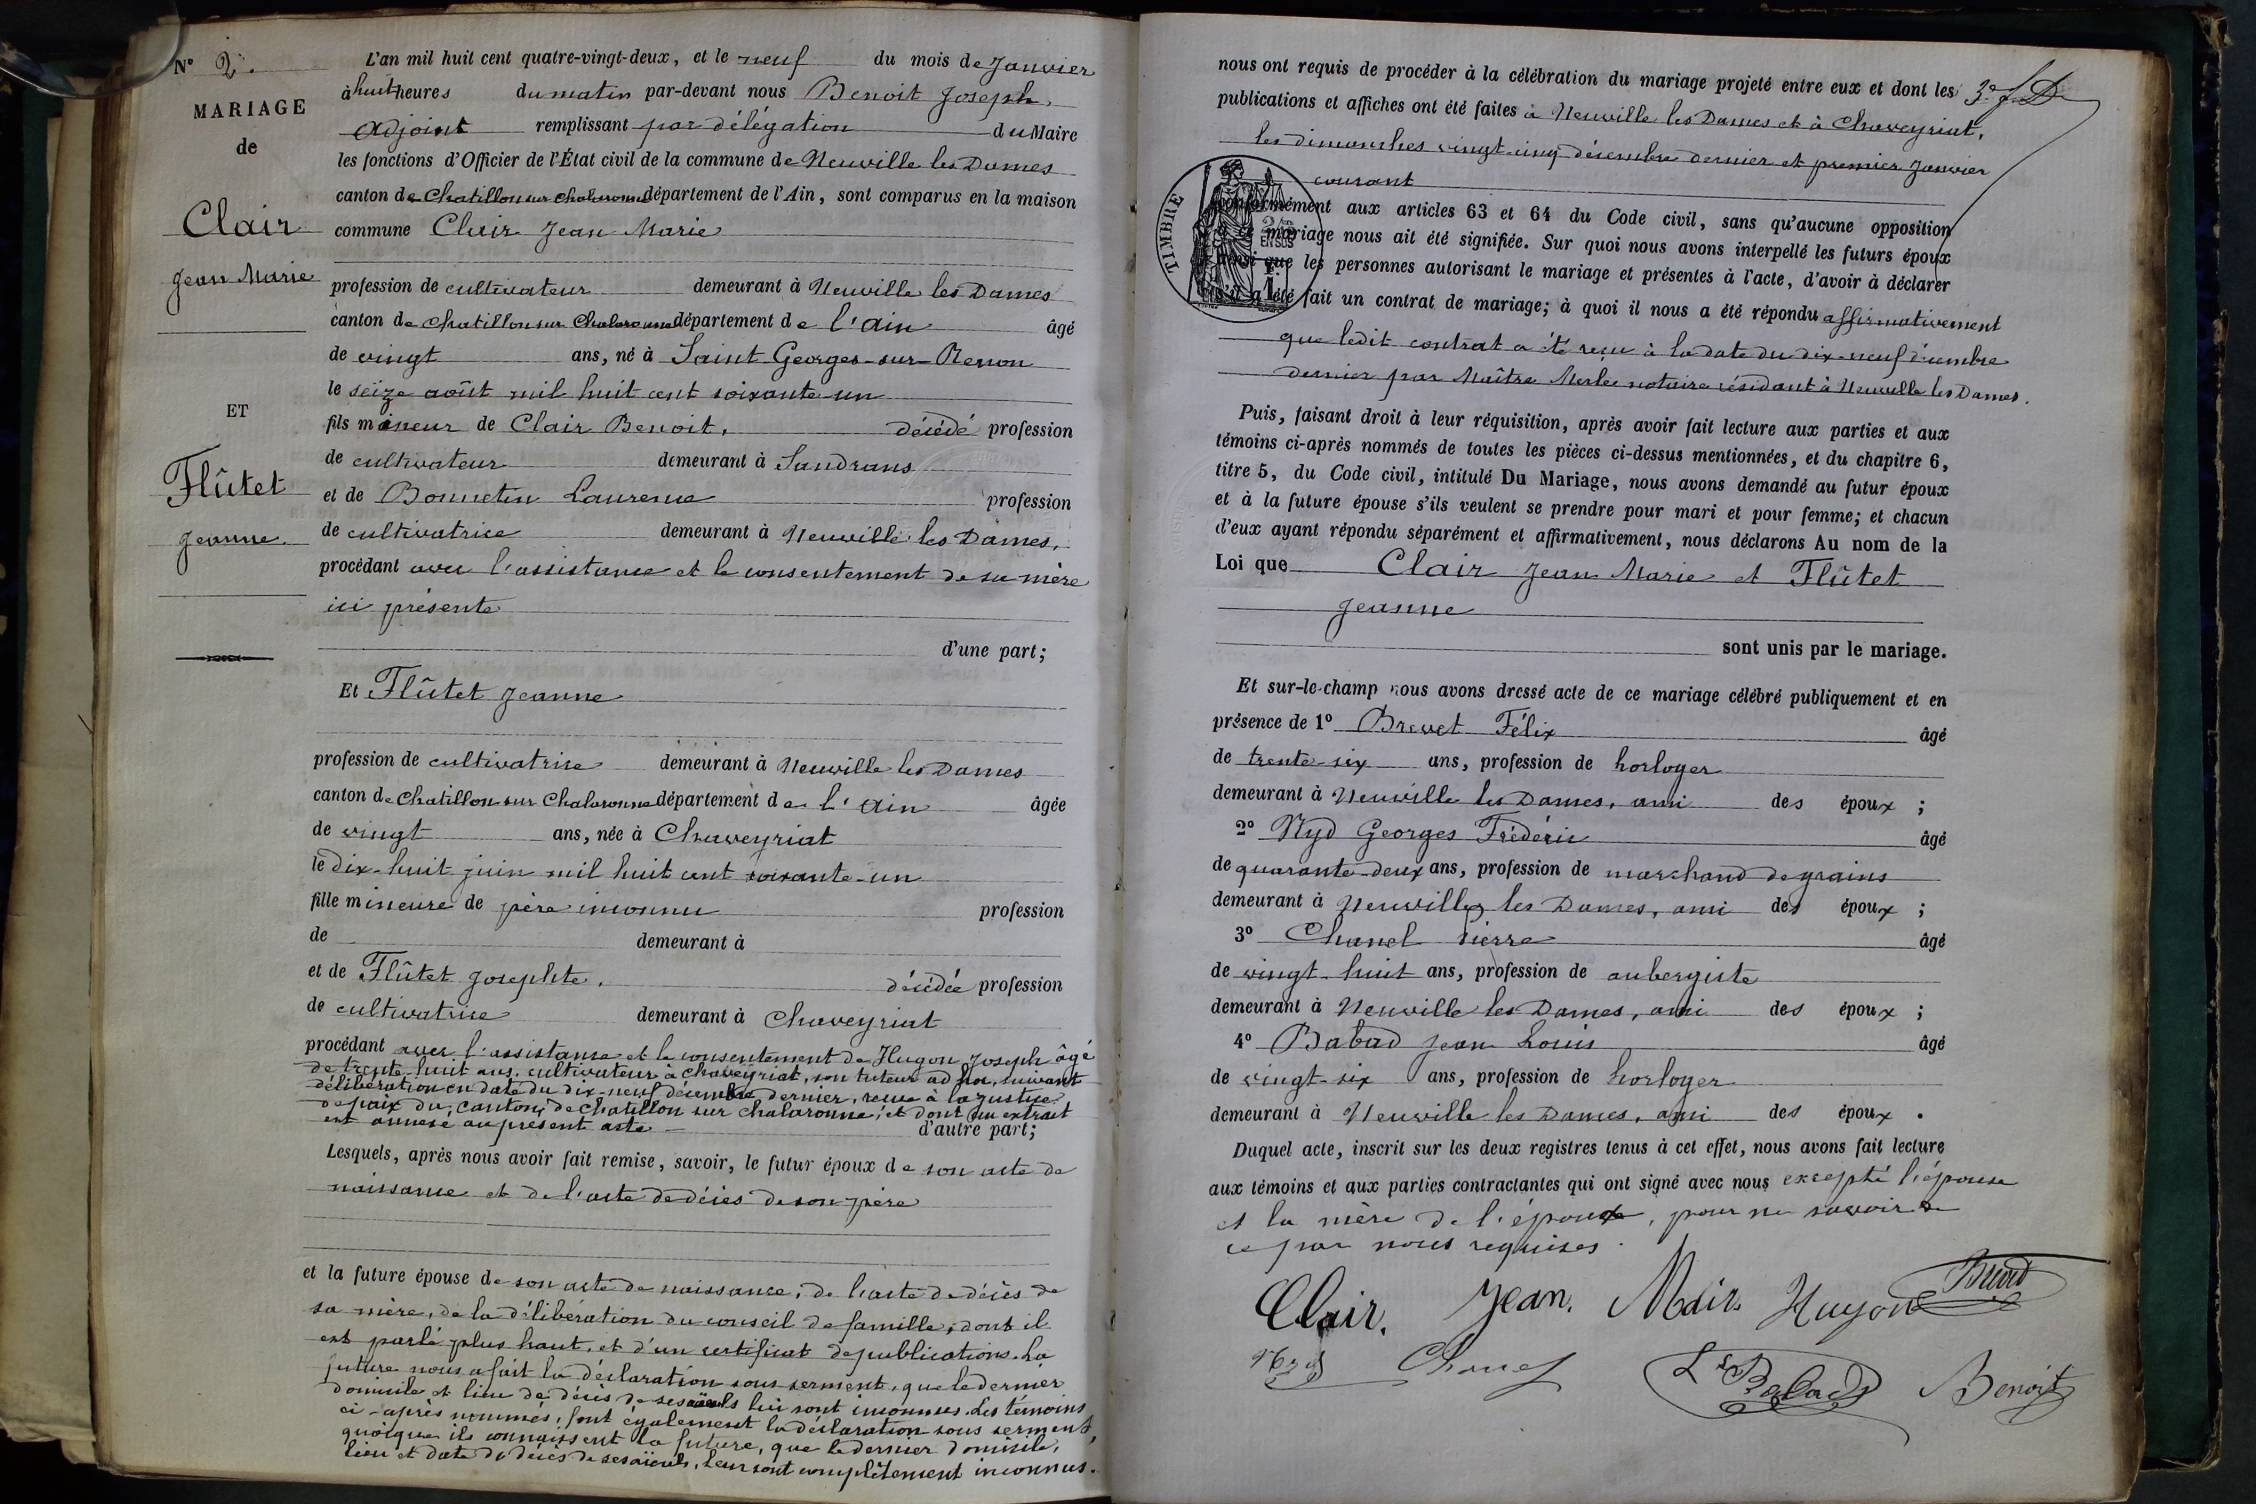 N° 2.
MARIAGE
de
Clair
Jean Marie
ET
Flûtet
Jeanne.
L'an mil huit cent quatre-vingt-deux, et le neuf du mois de Janvier
à huit heures du matin par-devant nous Benoit Joseph,
Adjoint remplissant par délégation du Maire
les fonctions d'Officier de l'État civil de la commune de Neuville les Dames
canton de Chatillon sur Chalaronne département de l'Ain, sont comparus en la maison
commune Clair Jean Marie
profession de cultivateur demeurant à Neuville les Dames
canton de Chatillon sur Chalaronne département de l'Ain âgé
de vingt ans, né à Saint Georges-sur-Renon
le seize août mil huit cent soixante-un
fils mineur de Clair Benoit, décédé profession
de cultivateur demeurant à Sandrans
et de Bonnetin Laurence profession
de cultivatrice demeurant à Neuville les Dames,
procédant avec l'assistance et le consentement de sa mère
ici présente
d'une part;
Et Flûtet Jeanne
profession de cultivatrice demeurant à Neuville les Dames
canton de Chatillon sur Chalaronne département de l'Ain âgée
de vingt ans, née à Chaveyriat
le dix-huit juin mil huit cent soixante-un
fille mineure de père inconnu profession
de demeurant à
et de Flûtet Josephte, décédée profession
de cultivatrice demeurant à Chaveyriat
procédant avec l'assistance et le consentement de Hugon Joseph âgé
de trente-huit ans, cultivateur à Chaveyriat, son tuteur ad hoc, suivant
délibération en date du dix-neuf décembre dernier, reçue à la justice
de paix du canton de Chatillon sur Chalaronne, et dont un extrait
est annexé au présent acte d'autre part;
Lesquels, après nous avoir fait remise, savoir, le futur époux de son acte de
naissance et de l'acte de décès de son père
et la future épouse de son acte de naissance, de l'acte de décès de
sa mère, de la délibération du conseil de famille, dont il
est parlé plus haut, et d'un certificat de publications. La
future nous a fait la déclaration sous serment, que le dernier
domicile et lieu de décès de ses aïeuls lui sont inconnus. Les témoins
ci-après nommés, font également la déclaration sous serment,
quoique ils connaissent la future, que le dernier domicile,
lieu et date de décès de ses aïeuls, leur sont complètement inconnus.
nous ont requis de procéder à la célébration du mariage projeté entre eux et dont les
publications et affiches ont été faites à Neuville les Dames et à Chaveyriat,
les dimanches vingt-cinq décembre dernier et premier Janvier
courant
TIMBRE
conformément aux articles 63 et 64 du Code civil, sans qu'aucune opposition
à ce mariage nous ait été signifiée. Sur quoi nous avons interpellé les futurs époux
ainsi que les personnes autorisant le mariage et présentes à l'acte, d'avoir à déclarer
s'il a été fait un contrat de mariage; à quoi il nous a été répondu affirmativement
que ledit contrat a été reçu à la date du dix-neuf décembre
dernier par Maître Merle notaire résidant à Neuville les Dames.
Puis, faisant droit à leur réquisition, après avoir fait lecture aux parties et aux
témoins ci-après nommés de toutes les pièces ci-dessus mentionnées, et du chapitre 6,
titre 5, du Code civil, intitulé Du Mariage, nous avons demandé au futur époux
et à la future épouse s'ils veulent se prendre pour mari et pour femme; et chacun
d'eux ayant répondu séparément et affirmativement, nous déclarons Au nom de la
Loi que Clair Jean Marie et Flûtet
Jeanne
sont unis par le mariage.
Et sur-le-champ nous avons dressé acte de ce mariage célébré publiquement et en
présence de 1° Brevet Félix âgé
de trente-six ans, profession de horloger
demeurant à Neuville les Dames, ami des époux ;
2° Nyd Georges Frédéric âgé
de quarante-deux ans, profession de marchand de grains
demeurant à Neuville les Dames, ami des époux ;
3° Chanel Pierre âgé
de vingt-huit ans, profession de aubergiste
demeurant à Neuville les Dames, ami des époux ;
4° Babad Jean Louis âgé
de vingt-six ans, profession de horloger
demeurant à Neuville les Dames, ami des époux .
Duquel acte, inscrit sur les deux registres tenus à cet effet, nous avons fait lecture
aux témoins et aux parties contractantes qui ont signé avec nous excepté l'épouse
et la mère de l'époux, pour ne savoir de
ce par nous requises.
Clair. Jean. Mair. Hugon Brevet
Nyd Chanel Ls Babad Benoit